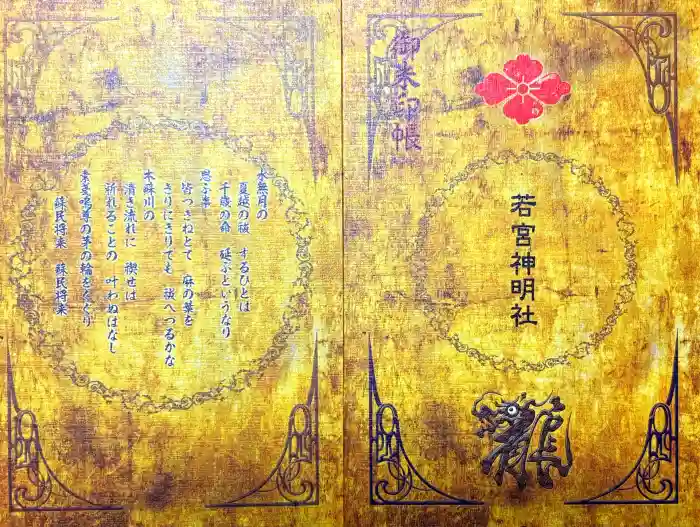 御朱印帳
若宮神明社
龍
水無月の
夏越の祓 するひとは
千歳の命 延ぶというなり
思ふ事
皆つきねとて 麻の葉を
きりにきりても 祓へつるかな
木蘇川の
清き流れに 禊せば
祈れることの 叶わぬはなし
素盞嗚尊の茅の輪をくぐり
蘇民将来 蘇民将来